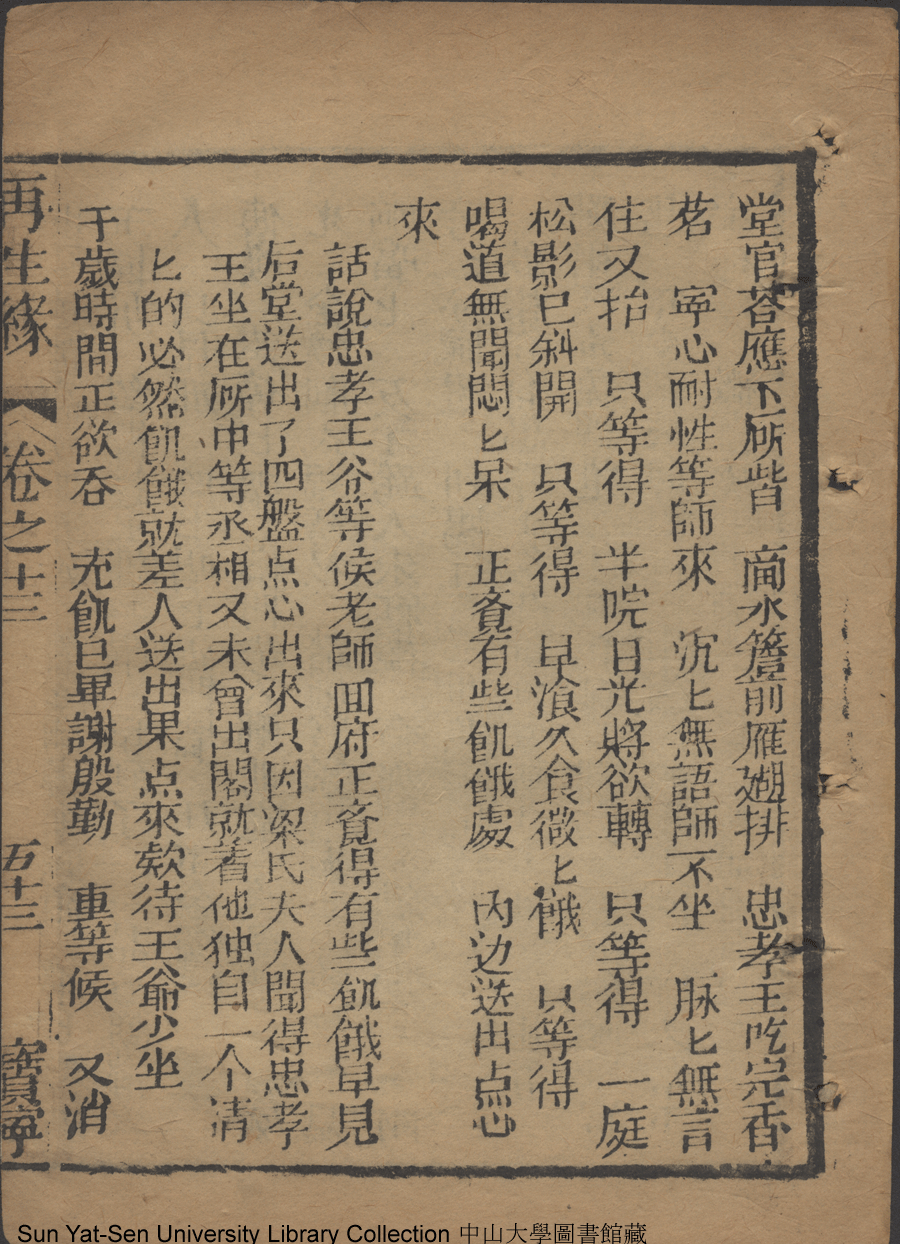 堂官荅應下廂堦 滴水簷前雁翅排 忠孝王吃完香
茗 寧心耐性等師來 沉匕無語師不坐 脉匕無言
住又抬 只等得 半院日光將欲轉 只等得 一庭
松影已斜開 只等得 早湌久食微匕餓 只等得
喝道無聞悶匕呆 正賫有些飢餓處 内边送出点心
來
話說忠孝王爷等候老師囬府正賫得有些飢餓早見
后堂送出了四盤点心出來只因梁氏夫人聞得忠孝
王坐在㕔中等丞相又未曾出閣就着他独自一个清
匕的必然飢餓就差人送出果点來欵待王爺少坐
千歲時間正欲吞 充飢已畢謝殷勤 重等候 又消
再生緣 卷之十三 五十三 寶寧
Sun Yat-Sen University Library Collection 中山大學圖書館藏